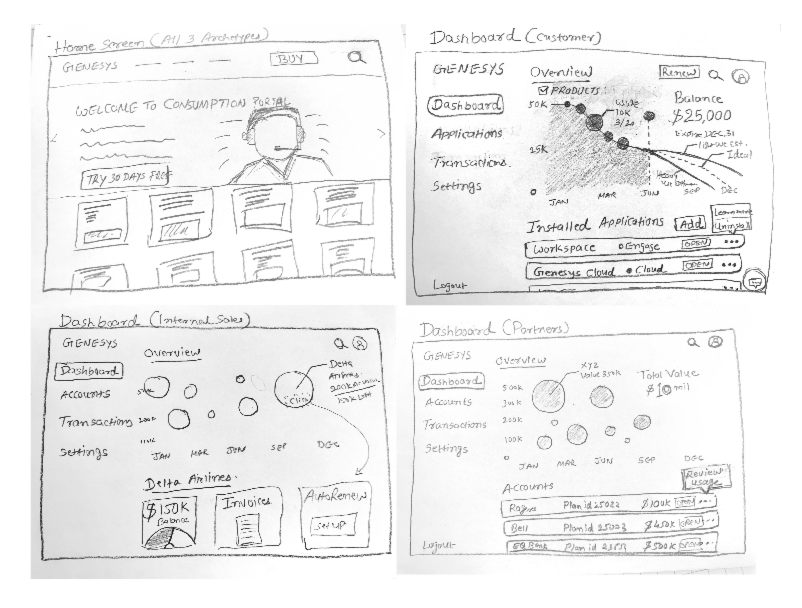 Home Screen (All 3 Archetypes)
GENESYS
BUY
WELCOME TO CONSUMPTION PORTAL
TRY 30 DAYS FREE
Dashboard (Customer)
GENESYS
Overview
Renew
Dashboard
PRODUCTS
50K
Balance
$25,000
10K
3/20
Applications
Expire DEC, 31
25K
Ideal
Transactions
Settings
0
JAN
MAR
JUN
SEP
DEC
Installed Applications
Add
Uninstall
Workspace
Engage
OPEN
Genesys Cloud
Cloud
OPEN
Logout
Dashboard (Internal Sales)
GENESYS
Overview
Dashboard
Delta
Accounts
Click
Transaction
200K
Settings
JAN
MAR
JUN
SEP
DEC
Delta Airlines
$150K
Balance
Invoices
SETUP
Dashboard (Partners)
GENESYS
Overview
XYZ
Value 350K
Total Value
$10 mil
Dashboard
500K
Accounts
300K
Transactions
200K
Settings
100K
0
JAN
MAR
JUN
SEP
DEC
Accounts
Review
usage
Rogers
Plan id 25022
$100K
OPEN
Bell
Plan id 25003
$450K
OPEN
Logout
EQ Bank
$500K